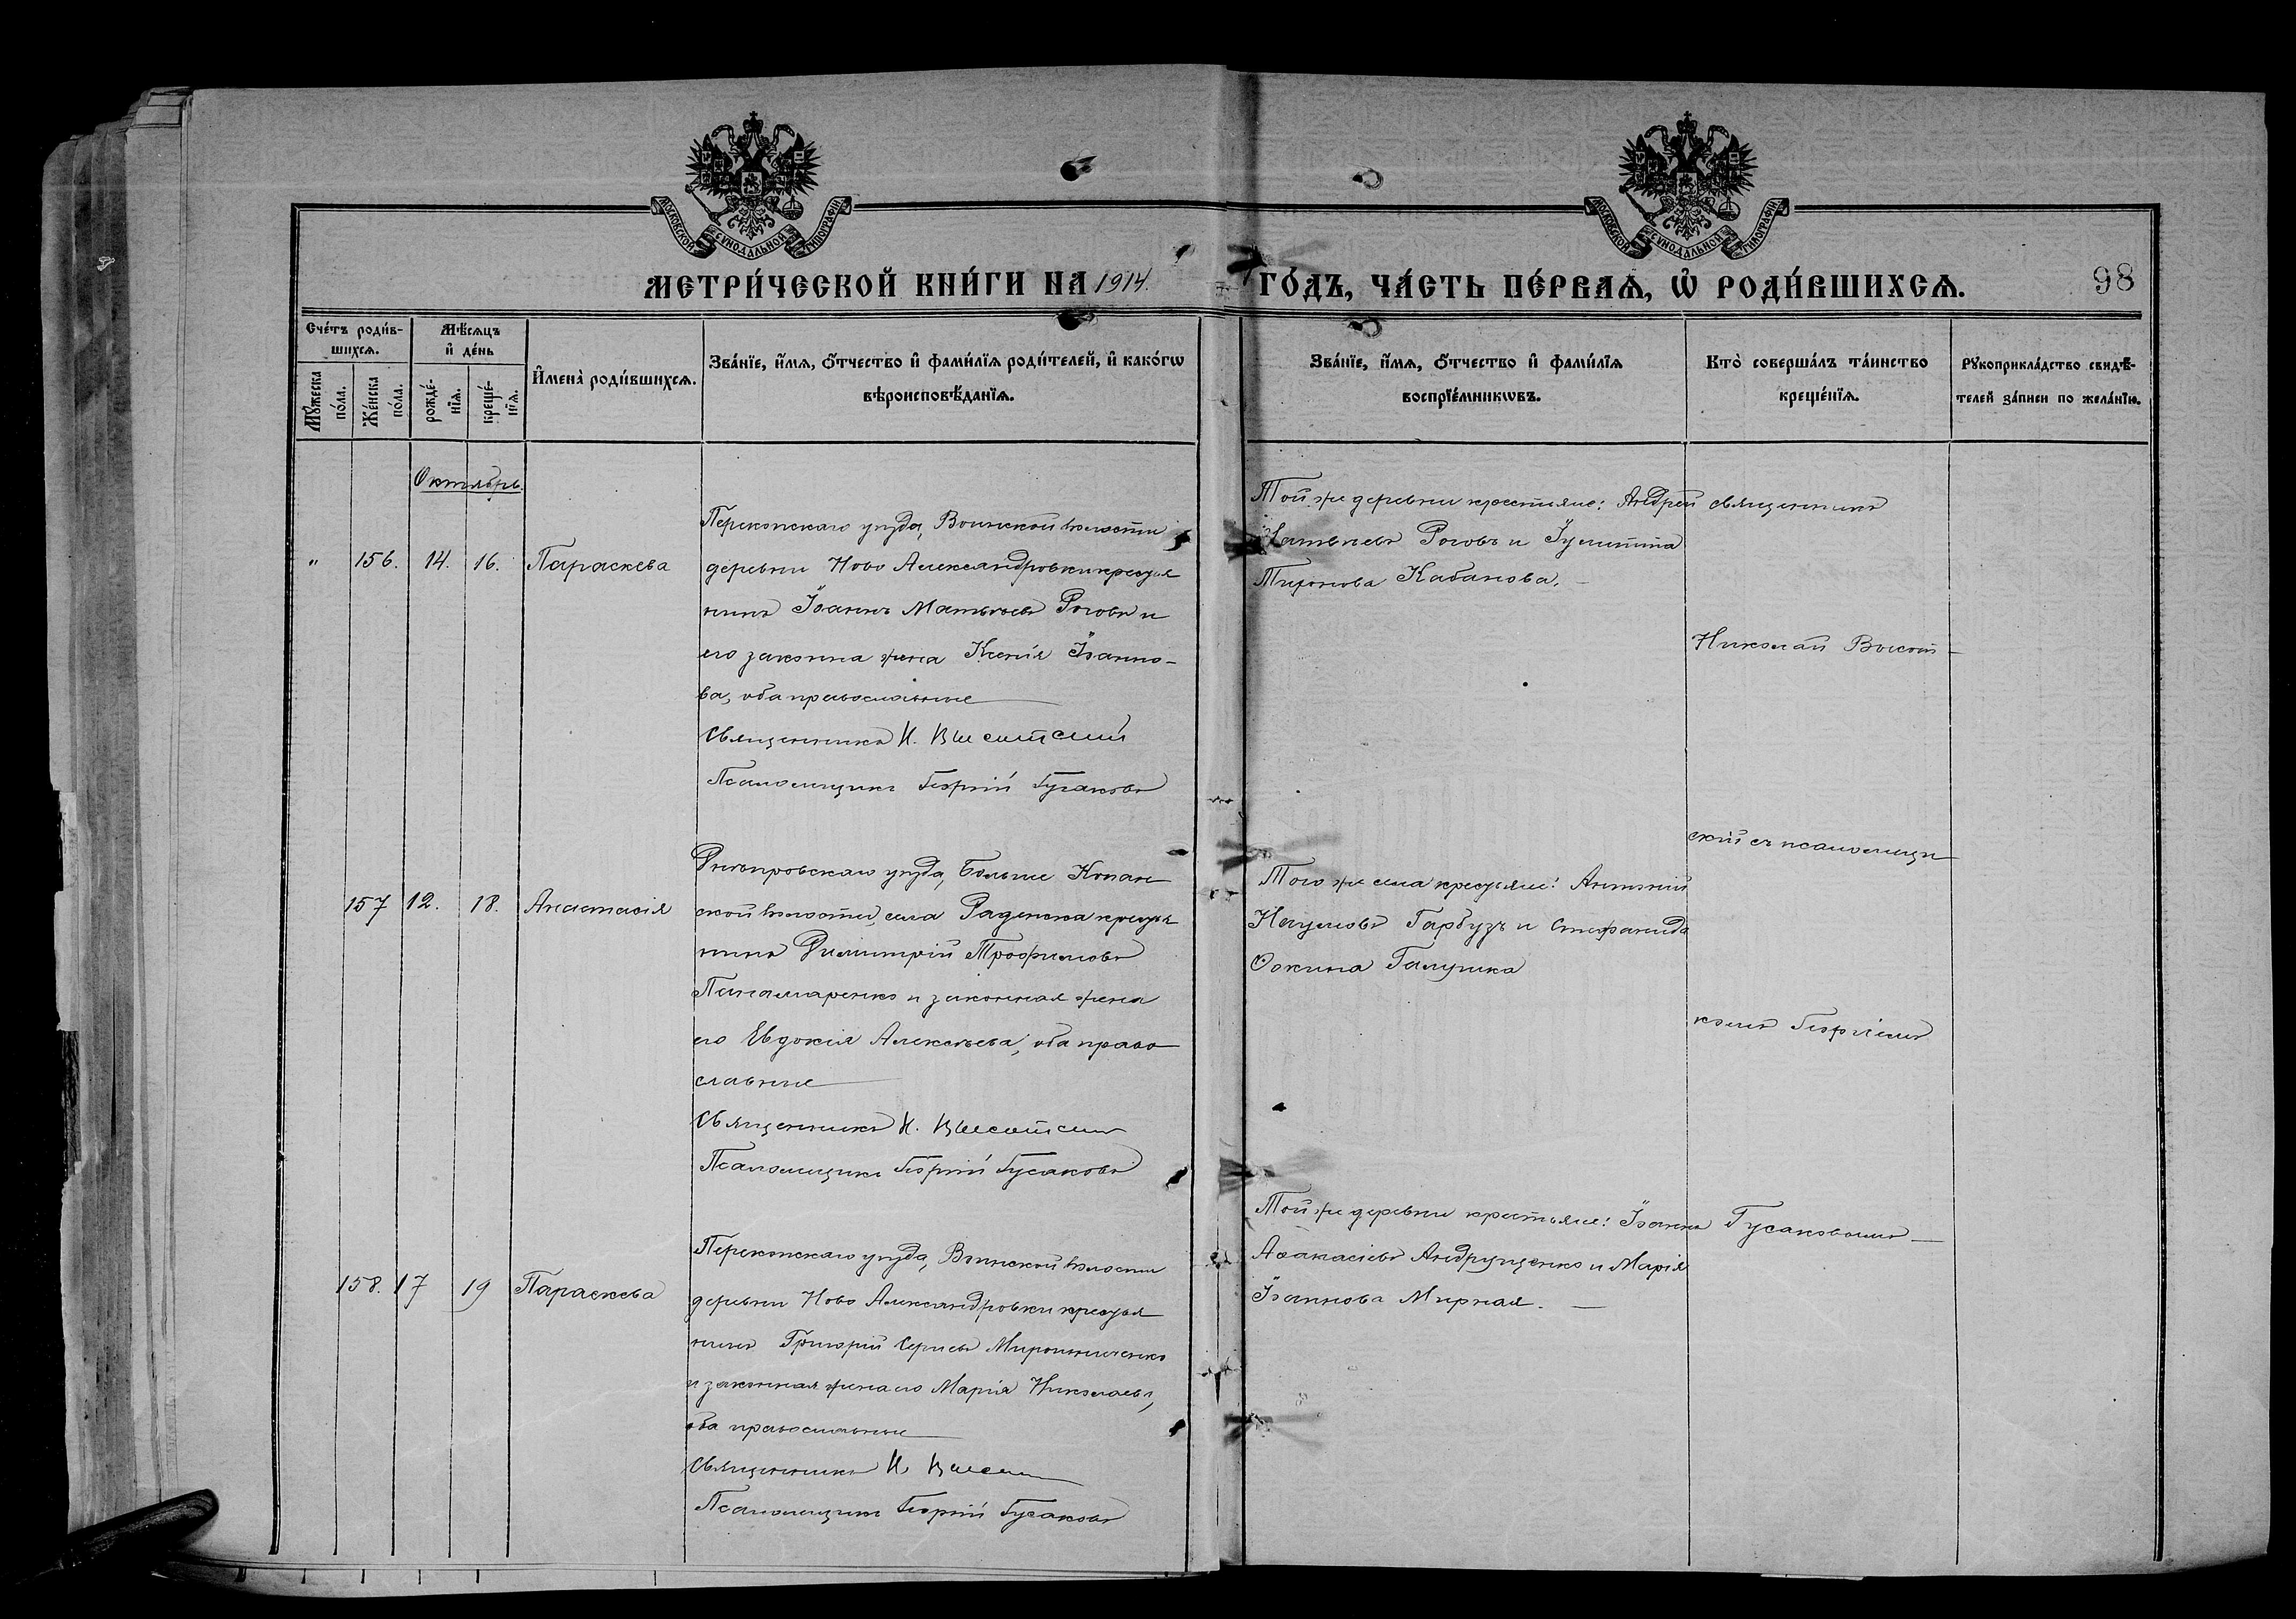 МОСКОВСКОЙ СѴНОДАЛЬНОЙ ТИПОГРАФІИ
МОСКОВСКОЙ СѴНОДАЛЬНОЙ ТИПОГРАФІИ
МЕТРИ́ЧЕСКОЙ КНИ́ГИ НА 1914. ГО́ДЪ, ЧА́СТЬ ПЕ́РВАѦ, Ѡ҆ РОДИ́ВШИХСѦ.
98
Сче́тъ роди́в-
шихсѧ.
Мѣ́сѧцъ
и҆ де́нь
Мꙋ́жеска
по́ла.
Же́нска
по́ла.
рожде́-
нїѧ.
креще́-
нїѧ.
И҆мена̀ роди́вшихсѧ.
Зва́нїе, и҆́мѧ, ѻ҆́тчество и҆ фами́лїѧ роди́телей, и҆ како́гѡ
вѣроисповѣ́данїѧ.
Зва́нїе, и҆́мѧ, ѻ҆́тчество и҆ фами́лїѧ
воспрїе́мникѡвъ.
Кто̀ соверша́лъ та́инство
креще́нїѧ.
Рꙋкоприкла́дство свидѣ́-
телей за́писи по жела́нїю.
Октябрь.
" 156. 14. 16. Параскева
Перекопскаго уѣзда, Воинской волости
деревни Ново Александровки крестья
нинъ Іоаннъ Матвѣевъ Роговъ и
его законна жена Ксенія Іоанно-
ва, оба православные
Священникъ Н. Высотскій
Псаломщикъ Георгій Гусаковъ
Той же деревни крестьяне: Андрей
Матвѣевъ Роговъ и Іулитта
Кабанова.
157 12. 18. Анастасія
Днѣпровскаго уѣзда, Больше Копан-
ской волости, села Раденска крестья
нинъ Димитрій Трофимовъ
Панамаренко и законная жена
его Евдокія Алексѣева, оба право-
славные
Священникъ Н. Высотскій
Псаломщикъ Георгій Гусаковъ
Того же села крестьяне: Антоній
Наумовъ Гарбузъ и Стефанида
Ѳокина Галушка
158. 17 19 Параскева
Перекопскаго уѣзда, Воинской волости
деревни Ново Александровки крестья
нинъ Григорій Сергіевъ Мирошниченко
и законная жена его Марія Николаева,
оба православные
Священникъ Н. Высотскій
Псаломщикъ Георгій Гусаковъ
Той же деревни крестьяне: Іоаннъ
Аѳанасіевъ Андрущенко и Марія
Іоаннова Мирная.
священникъ
Николай Высот-
скій съ псаломщи-
комъ Георгіемъ
Гусаковымъ